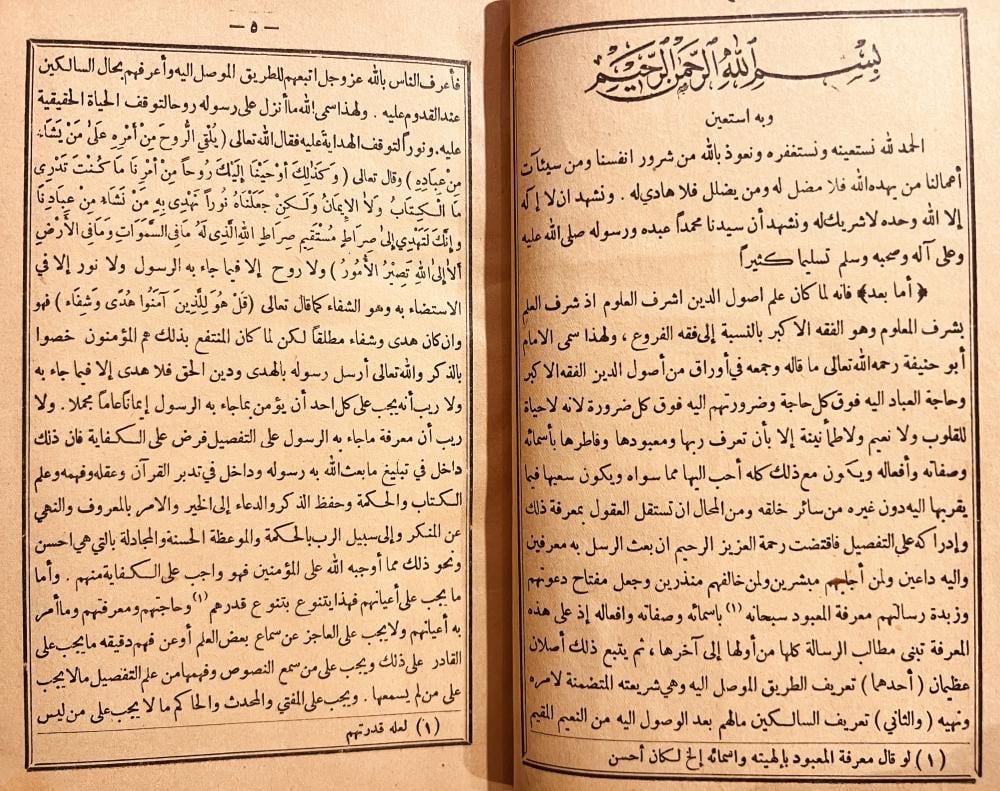 بسم الله الرحمن الرحيم
وبه استعين
الحمد لله نستعينه ونستغفره ونعوذ بالله من شرور انفسنا ومن سيئآت
أعمالنا من يهده الله فلا مضل له ومن يضلل فلا هادي له . ونشهد ان لا إله
إلا الله وحده لا شريك له ونشهد أن سيدنا محمداً عبده ورسوله صلى الله عليه
وعلى آله وصحبه وسلم تسليما كثيراً
﴿ أما بعد ﴾ فانه لما كان علم اصول الدين اشرف العلوم اذ شرف العلم
بشرف المعلوم وهو الفقه الاكبر بالنسبة إلى فقه الفروع ، ولهذا سمى الامام
أبو حنيفة رحمه الله تعالى ما قاله وجمعه في أوراق من أصول الدين الفقه الاكبر
وحاجة العباد اليه فوق كل حاجة وضرورتهم اليه فوق كل ضرورة لانه لا حياة
للقلوب ولا نعيم ولا طمأنينة إلا بأن تعرف ربها ومعبودها وفاطرها بأسمائه
وصفاته وأفعاله ويكون مع ذلك كله أحب اليها مما سواه ويكون سعيها فيما
يقربها اليه دون غيره من سائر خلقه ومن المحال ان تستقل العقول بمعرفة ذلك
وإدراكه على التفصيل فاقتضت رحمة العزيز الرحيم ان بعث الرسل به معرفين
واليه داعين ولمن أجابهم مبشرين ولمن خالفهم منذرين وجعل مفتاح دعوتهم
وزبدة رسالتهم معرفة المعبود سبحانه (١) باسمائه وصفاته وافعاله إذ على هذه
المعرفة تبنى مطالب الرسالة كلها من أولها إلى آخرها ، ثم يتبع ذلك أصلان
عظيمان ( أحدهما ) تعريف الطريق الموصل اليه وهي شريعته المتضمنة لامره
ونهيه ( والثاني ) تعريف السالكين مالهم بعد الوصول اليه من النعيم المقيم
(١) لو قال معرفة المعبود بإلهيته واسمائه إلخ لكان أحسن
— ٥ —
فأعرف الناس بالله عز وجل اتبعهم للطريق الموصل اليه وأعرفهم بحال السالكين
عند القدوم عليه . ولهذا سمى الله ما أنزل على رسوله روحا لتوقف الحياة الحقيقية
عليه ونوراً لتوقف الهداية عليه فقال الله تعالى ( يُلْقِي الرُّوحَ مِنْ أَمْرِهِ عَلَى مَنْ يَشَاءُ
مِنْ عِبَادِهِ ) وقال تعالى ( وَكَذَلِكَ أَوْحَيْنَا إِلَيْكَ رُوحاً مِنْ أَمْرِنَا مَا كُنْتَ تَدْرِي
مَا الْكِتَابُ وَلاَ الإِيمَانُ وَلَكِنْ جَعَلْنَاهُ نُوراً نَهْدِي بِهِ مَنْ نَشَاءُ مِنْ عِبَادِنَا
وَإِنَّكَ لَتَهْدِي إِلَى صِرَاطٍ مُسْتَقِيمٍ صِرَاطِ اللهِ الَّذِي لَهُ مَا فِي السَّمَوَاتِ وَمَا فِي الأَرْضِ
أَلاَ إِلَى اللهِ تَصِيْرُ الأُمُورُ ) ولا روح إلا فيما جاء به الرسول ولا نور إلا في
الاستضاء به وهو الشفاء كما قال تعالى ( قُلْ هُوَ لِلَّذِينَ آمَنُوا هُدًى وَشِفَاء ) فهو
وان كان هدى وشفاء مطلقاً لكن لما كان المنتفع بذلك هم المؤمنون خصوا
بالذكر والله تعالى أرسل رسوله بالهدى ودين الحق فلا هدى إلا فيما جاء به
ولا ريب أنه يجب على كل احد أن يؤمن بما جاء به الرسول إيماناً عاماً مجملا . ولا
ريب أن معرفة ما جاء به الرسول على التفصيل فرض على الكفاية فان ذلك
داخل في تبليغ ما بعث الله به رسوله وداخل في تدبر القرآن وعقله وفهمه وعلم
الكتاب والحكمة وحفظ الذكر والدعاء إلى الخير والامر بالمعروف والنهي
عن المنكر وإلى سبيل الرب بالحكمة والموعظة الحسنة والمجادلة بالتي هي احسن
ونحو ذلك مما أوجبه الله على المؤمنين فهو واجب على الكفاية منهم . وأما
ما يجب على أعيانهم فهذا يتنوع بتنوع قدرهم (١) وحاجتهم ومعرفتهم وما أمر
به أعيانهم ولا يجب على العاجز عن سماع بعض العلم أو عن فهم دقيقه ما يجب على
القادر على ذلك ويجب على من سمع النصوص وفهمها من علم التفصيل ما لا يجب
على من لم يسمعها . ويجب على المفتي والمحدث والحاكم ما لا يجب على من ليس
(١) لعله قدرتهم